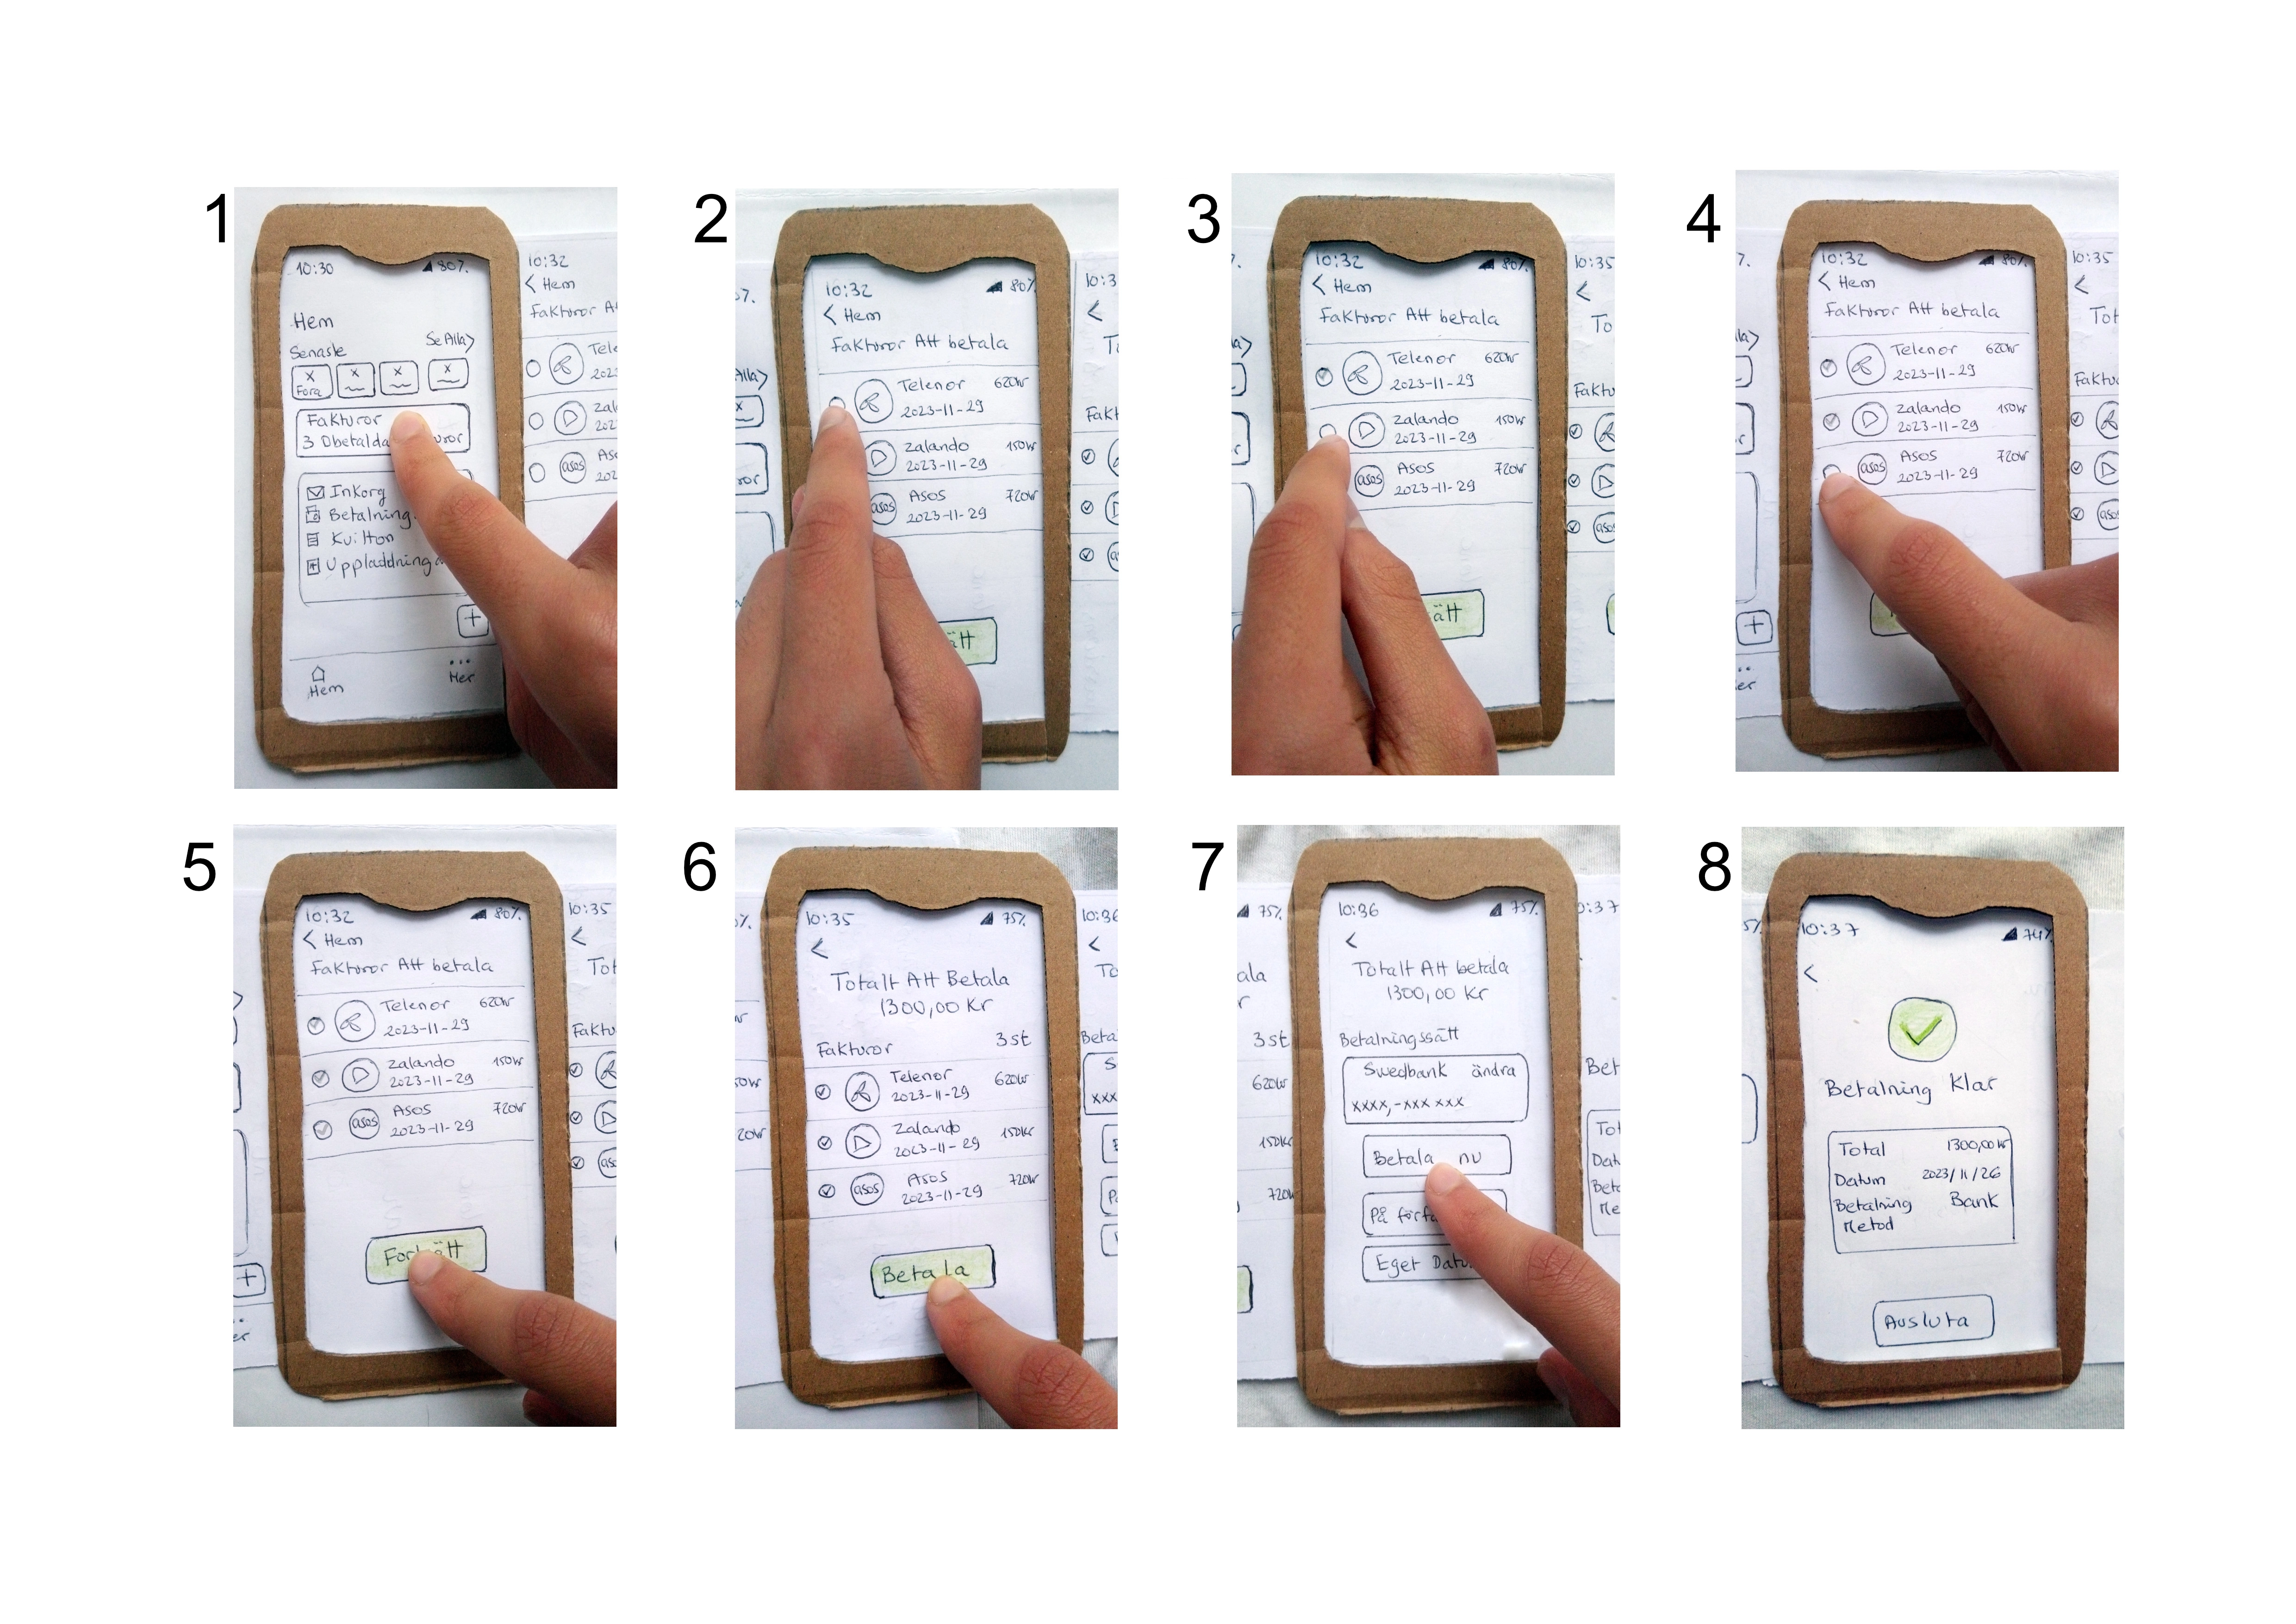 1
10:30 80%
Hem
Senaste Se Alla >
x x x x
Fora
Fakturor
3 Obetalda
Inkorg
Betalning
Kvitton
Uppladdning
+
Hem Mer
10:32
< Hem
Fakturor At
Tele
202
Zal
202
Aso
202
2
10:32 80%
< Hem
Fakturor Att betala
Telenor 620kr
2023-11-29
Zalando 150kr
2023-11-29
asos Asos 720kr
2023-11-29
ätt
3
10:32 80%
< Hem
Fakturor Att betala
Telenor 620kr
2023-11-29
Zalando 150kr
2023-11-29
asos Asos 720kr
2023-11-29
ätt
10:35
<
To
4
10:32 80%
< Hem
Fakturor Att betala
Telenor 620kr
2023-11-29
Zalando 150kr
2023-11-29
asos Asos 720kr
2023-11-29
10:35
<
Tot
Faktu
5
10:32 80%
< Hem
Fakturor Att betala
Telenor 620kr
2023-11-29
Zalando 150kr
2023-11-29
asos Asos 720kr
2023-11-29
Fortsätt
10:35
<
Tot
Faktu
6
10:35 75%
<
Totalt Att Betala
1300,00 Kr
Fakturor 3 st
Telenor 620kr
2023-11-29
Zalando 150kr
2023-11-29
asos Asos 720kr
2023-11-29
Betala
10:36
<
To
Beta
7
10:36 75%
<
Totalt Att betala
1300,00 Kr
Betalningssätt
Swedbank ändra
xxxx,-xxx xxx
Betala nu
På förfa
Eget Datu
75%
ala
r
3 st
620kr
150kr
720kr
Bet
Tot
Dat
Beta
Me
8
10:37 74%
<
Betalning Klar
Total 1300,00kr
Datum 2023/11/26
Betalning Bank
Metod
Avsluta